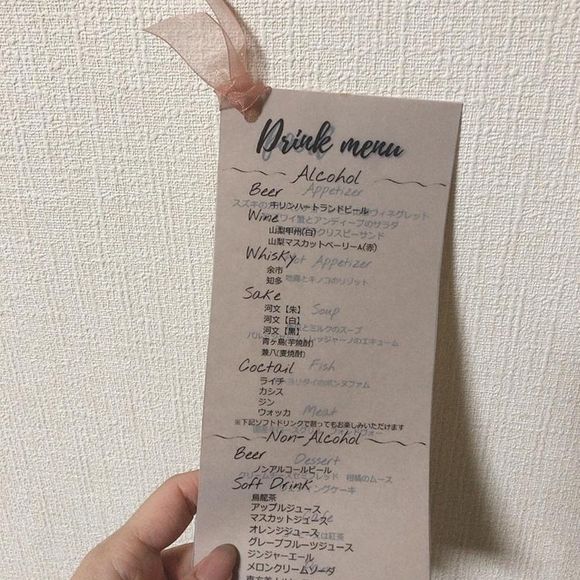 Drink menu
Alcohol
Beer
キリンハートランドビール
Wine
山梨甲州(白)
山梨マスカットベーリーA(赤)
Whisky
余市
知多
Sake
河文【朱】
河文【白】
河文【黒】
青ヶ島(芋焼酎)
兼八(麦焼酎)
Coctail
ライチ
カシス
ジン
ウォッカ
※下記ソフトドリンクで割ってもお楽しみいただけます
Non-Alcohol
Beer
ノンアルコールビール
Soft Drink
烏龍茶
アップルジュース
マスカットジュース
オレンジジュース
グレープフルーツジュース
ジンジャーエール
メロンクリームソーダ
Appetizer
Appetizer
地鶏とキノコのリゾット
Soup
Fish
Meat
Dessert